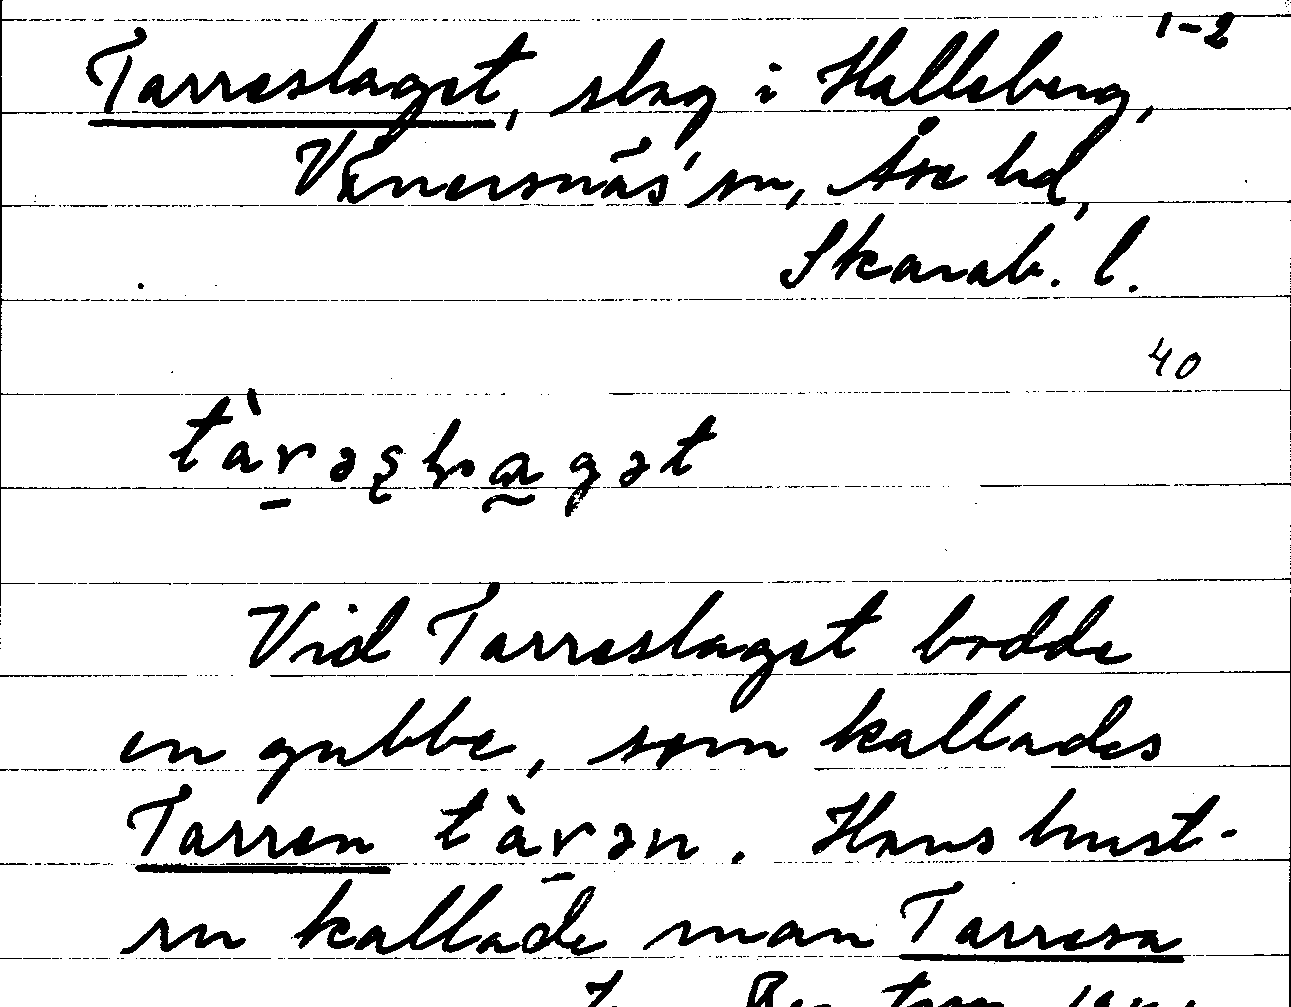 1-2
Tarreslaget, slag i Halleberg,
Vänersnäs sn, Åse hd,
Skarab. l.
40
Vid Tarreslaget bodde
en gubbe, som kallades
Tarren tàr̲ən. Hans hust-
ru kallade man Tarresa